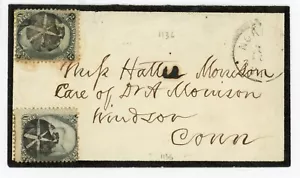 1136
Miss Hattie Morrison
Care of Dr A Morrison
Windsor
Conn
1136